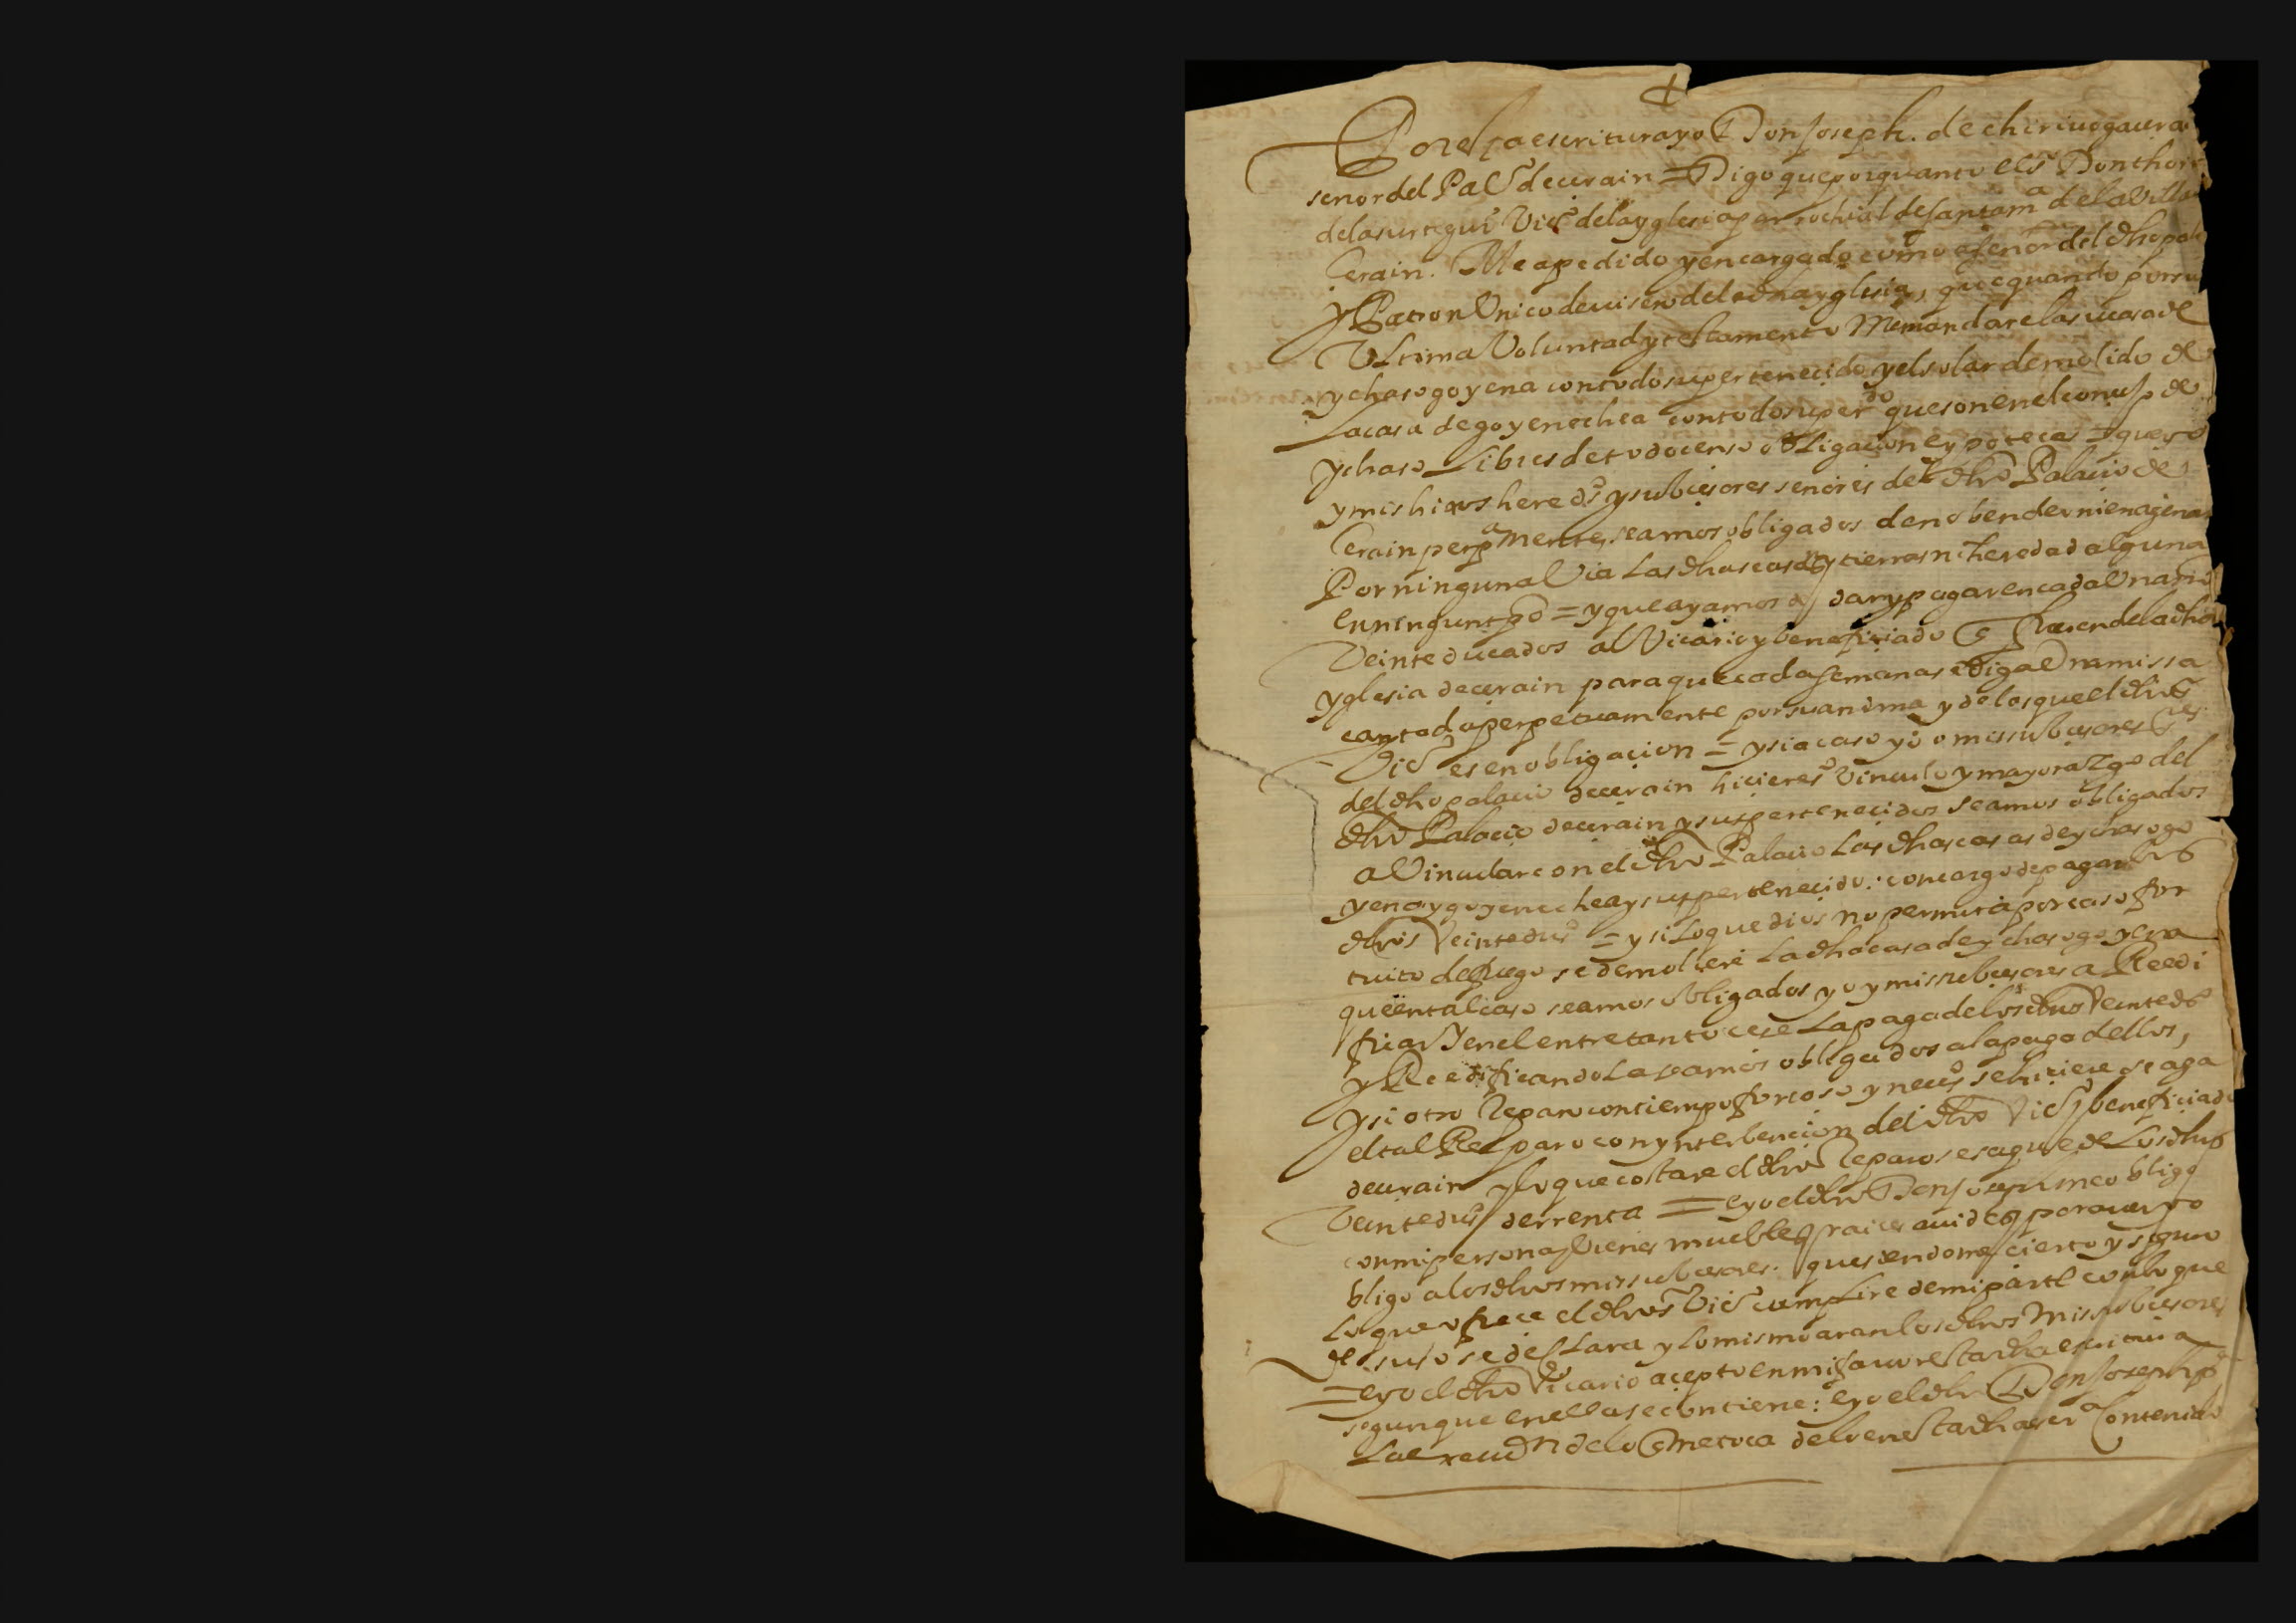 Por esta escritura yo Don Joseph. de chiriuoga ura
senor del Pal⁰ de cerain = Digo que por quanto el s^r Don
de lasurtegui Vic⁰ de la yglesia parrochial de santa m^a de la Villa
Cerain. Me a pedido y encargado como a senor del dho pala
y Patron Vnico deuisero de la dha yglesia, que quando por su
Vltima Voluntad y testamento me mandare las casas de
ychasogoyena con todo su pertenecido y el solar demolido de
La casa de goyenechea con todo su per^do que son en el concejo de
ychaso Libres de todo censo obligacion e ypotecas = que yo
y mis hijos hered⁰s y subcesores senores del dho Palacio de
Cerain perp^amente, seamos obligados de no bender ni enagenar
Por ninguna Via Las dhas casas y tierras ni heredad alguna
en ningun tpo = y que ayamos de dar y pagar en cada Vn año
Veinte ducados al Vicario y beneficiado q fueren de la dha
yglesia de cerain para que cada semana se diga Vna missa
cantada perpetuamente por su anima y de los que el dho s^r
Vic⁰ es en obligacion = y si acaso yo o mis subcesores s^res
del dho palacio de cerain hicieres⁰ Vinculo y mayorazgo del
dho Palacio de cerain y sus pertenecidos seamos obligados
a Vincular con el dho Palacio Las dhas casas de ychasogo
yena y goyenechea y sus pertenecido: con cargo de pagar los
dhos Veinte du⁰s = y si Lo que dios no permita por caso for
tuito de fuego se demoliere La dha casa de ychasogoyena
que en tal caso seamos obligados yo y mis subcesores a Reedi
ficar Y en el entretanto cese La paga de los dhos Veinte d⁰s
y Reedificandola seamos obligados a la paga dellos,
y si otro Reparo con tiempo forcoso y neces⁰ se hiciere se aga
el tal Reparo con ynterbencion del dho Vic⁰ y beneficiado
de cerain y lo que costare el dho Reparo se saque de Los dhos
Veinte du⁰s de rrenta = e yo el dho Don Joseph me obligo
con mi persona y bienes muebles y raices auidos y por auer y o
bligo a los dhos mis subcesores. que siendome cierto y seguro
Lo que ofrece el dho s^r Vic⁰ cumplire de mi parte con lo que
de suso se desLara y lo mismo aran los dhos mis subcesores
= e yo el dho Vicario acepto en mi fauor esta dha escritura
segun que en ella se contiene: e yo el dho Don Joseph p^a
La execu^on de lo q me toca de lo en esta dha escr^a Contenido